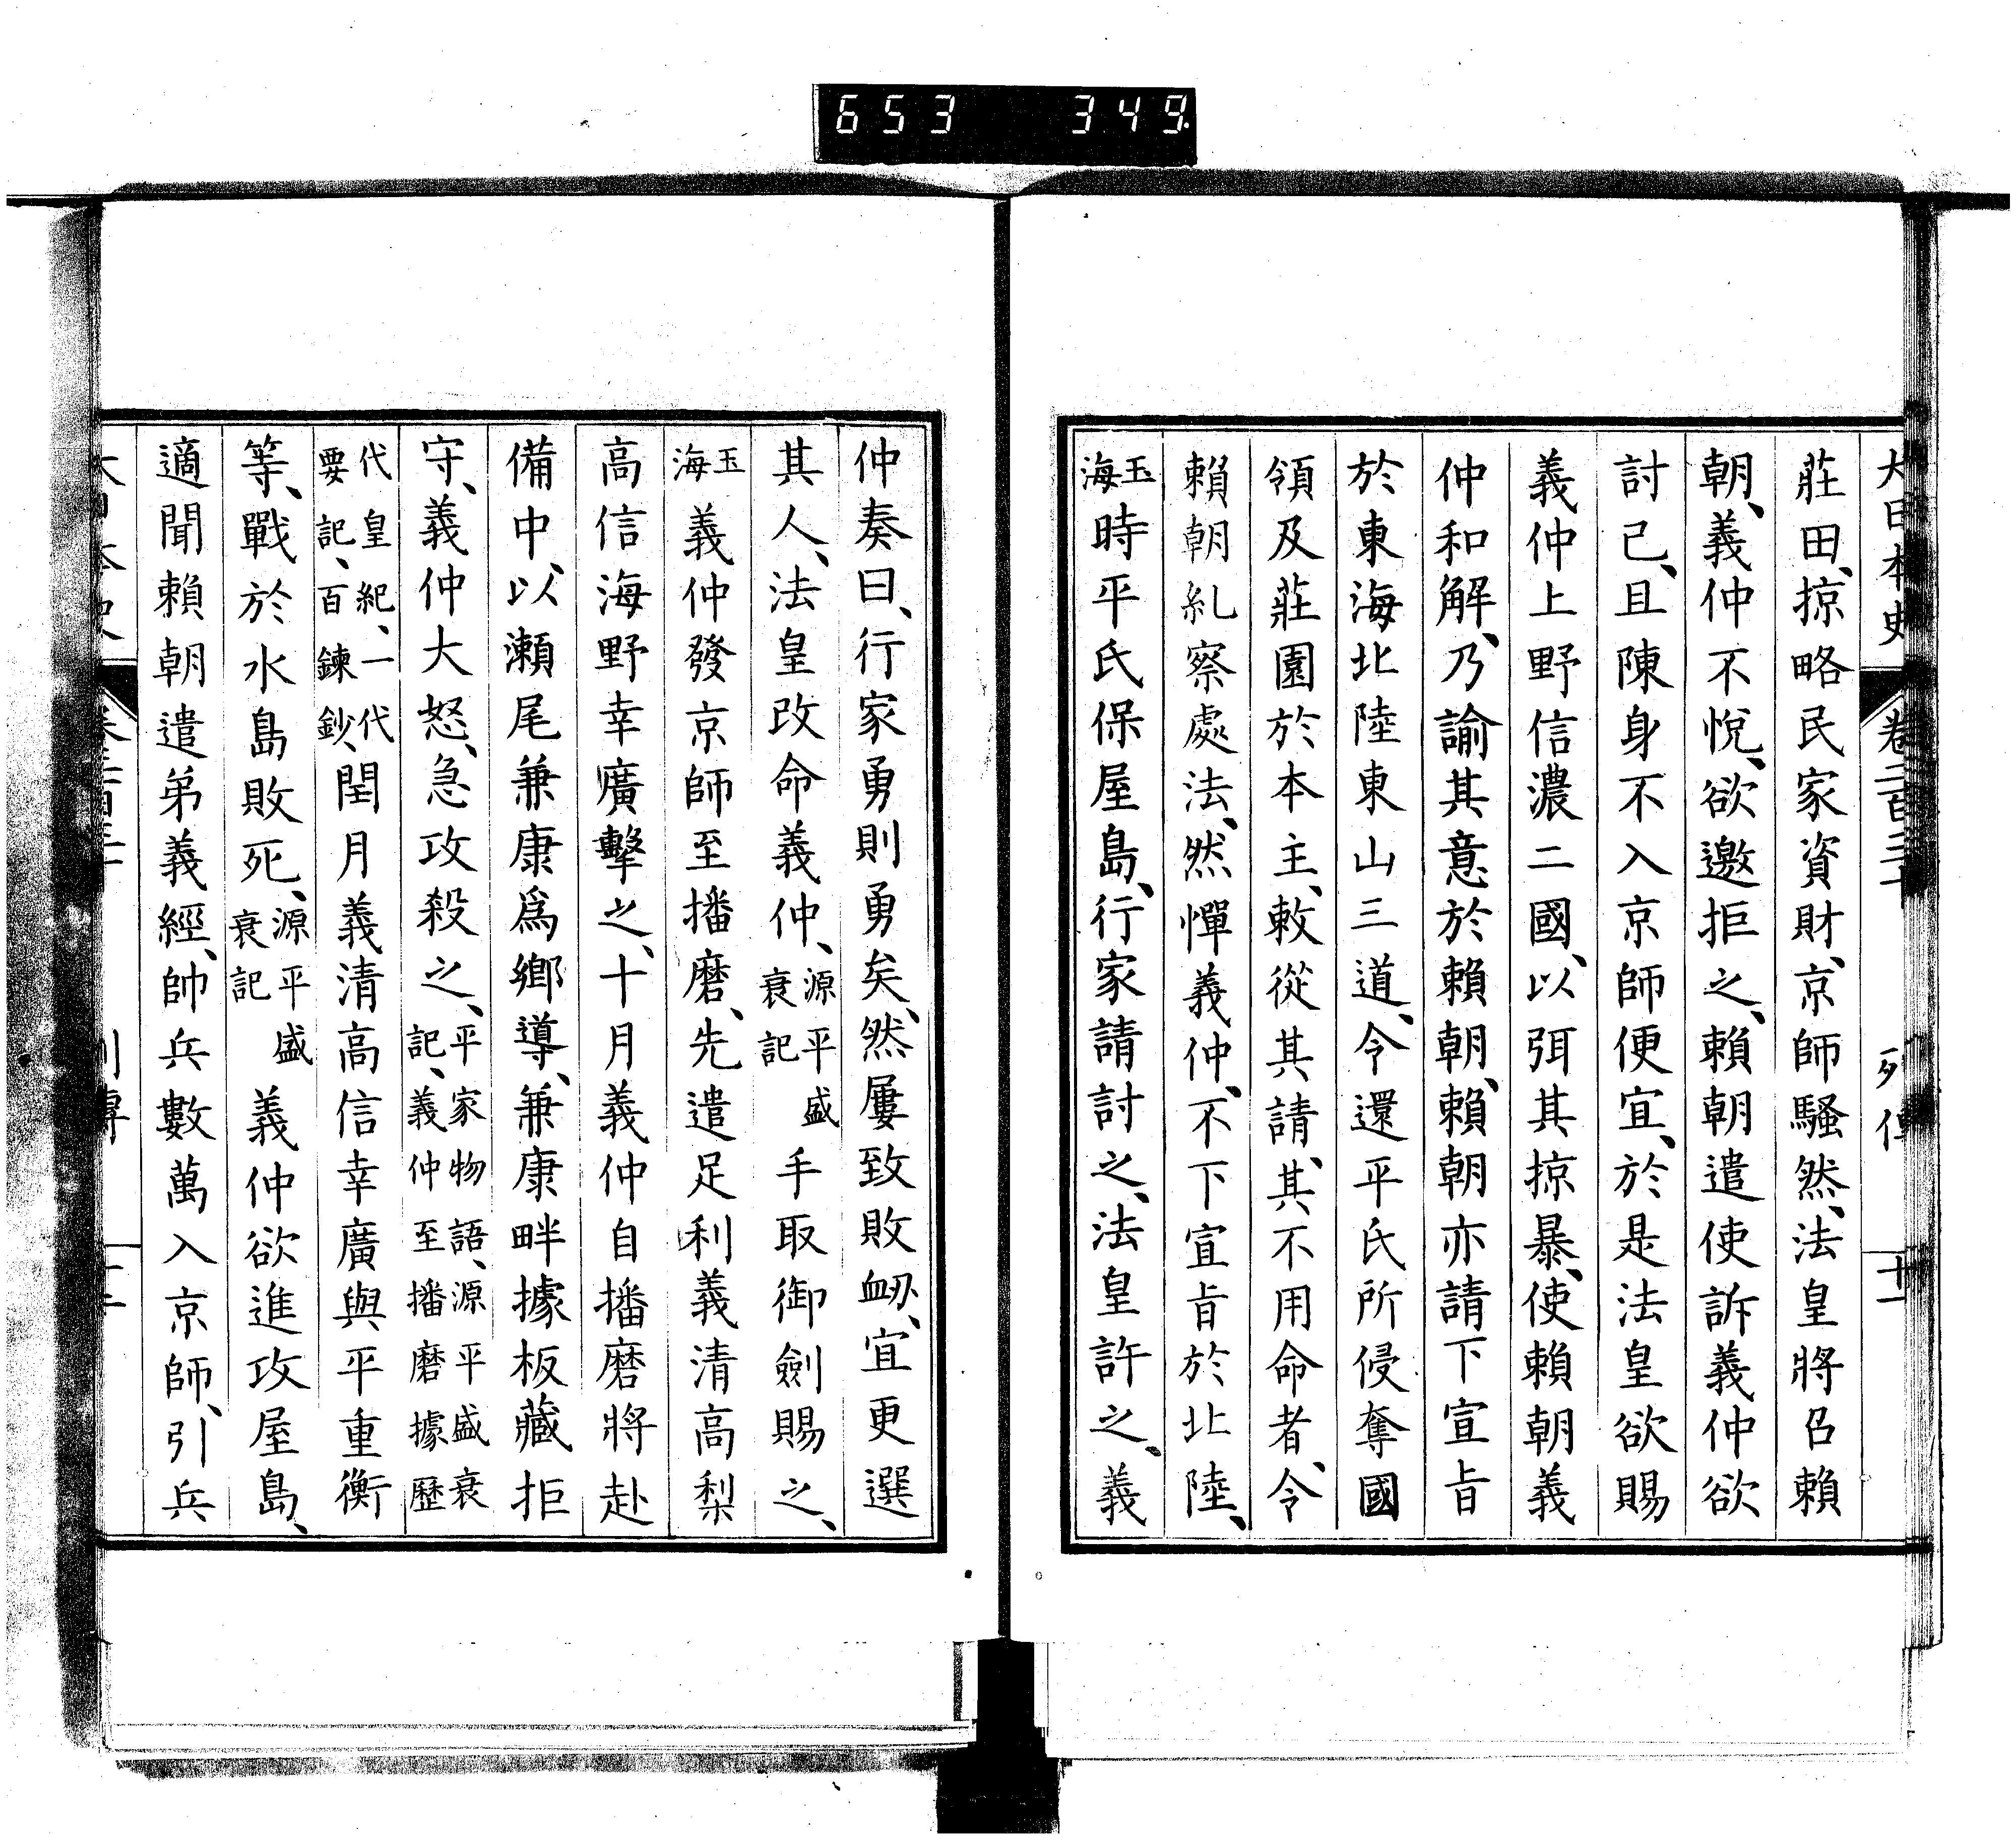 653 349
大日本史 卷二百三十 列傳 十一
莊田、掠略民家資財、京師騷然、法皇將召賴
朝、義仲不悅、欲邀拒之、賴朝遣使訴義仲欲
討己、且陳身不入京師便宜、於是法皇欲賜
義仲上野信濃二國、以弭其掠暴、使賴朝義
仲和解、乃諭其意於賴朝、賴朝亦請下宣旨
於東海北陸東山三道、令還平氏所侵奪國
領及莊園於本主、敕從其請、其不用命者、令
賴朝糺察處法、然憚義仲、不下宣旨於北陸、
玉海時平氏保屋島、行家請討之、法皇許之、義
仲奏曰、行家勇則勇矣、然屢致敗衂、宜更選
其人、法皇改命義仲、源平盛衰記手取御劍賜之、
玉海義仲發京師至播磨、先遣足利義清高梨
高信海野幸廣擊之、十月義仲自播磨將赴
備中、以瀨尾兼康爲鄉導、兼康畔據板藏拒
守、義仲大怒、急攻殺之、平家物語、源平盛衰記、義仲至播磨據歷
代皇紀、一代要記、百鍊鈔、閏月義清高信幸廣與平重衡
等、戰於水島敗死、源平盛衰記義仲欲進攻屋島、
適聞賴朝遣弟義經、帥兵數萬入京師、引兵